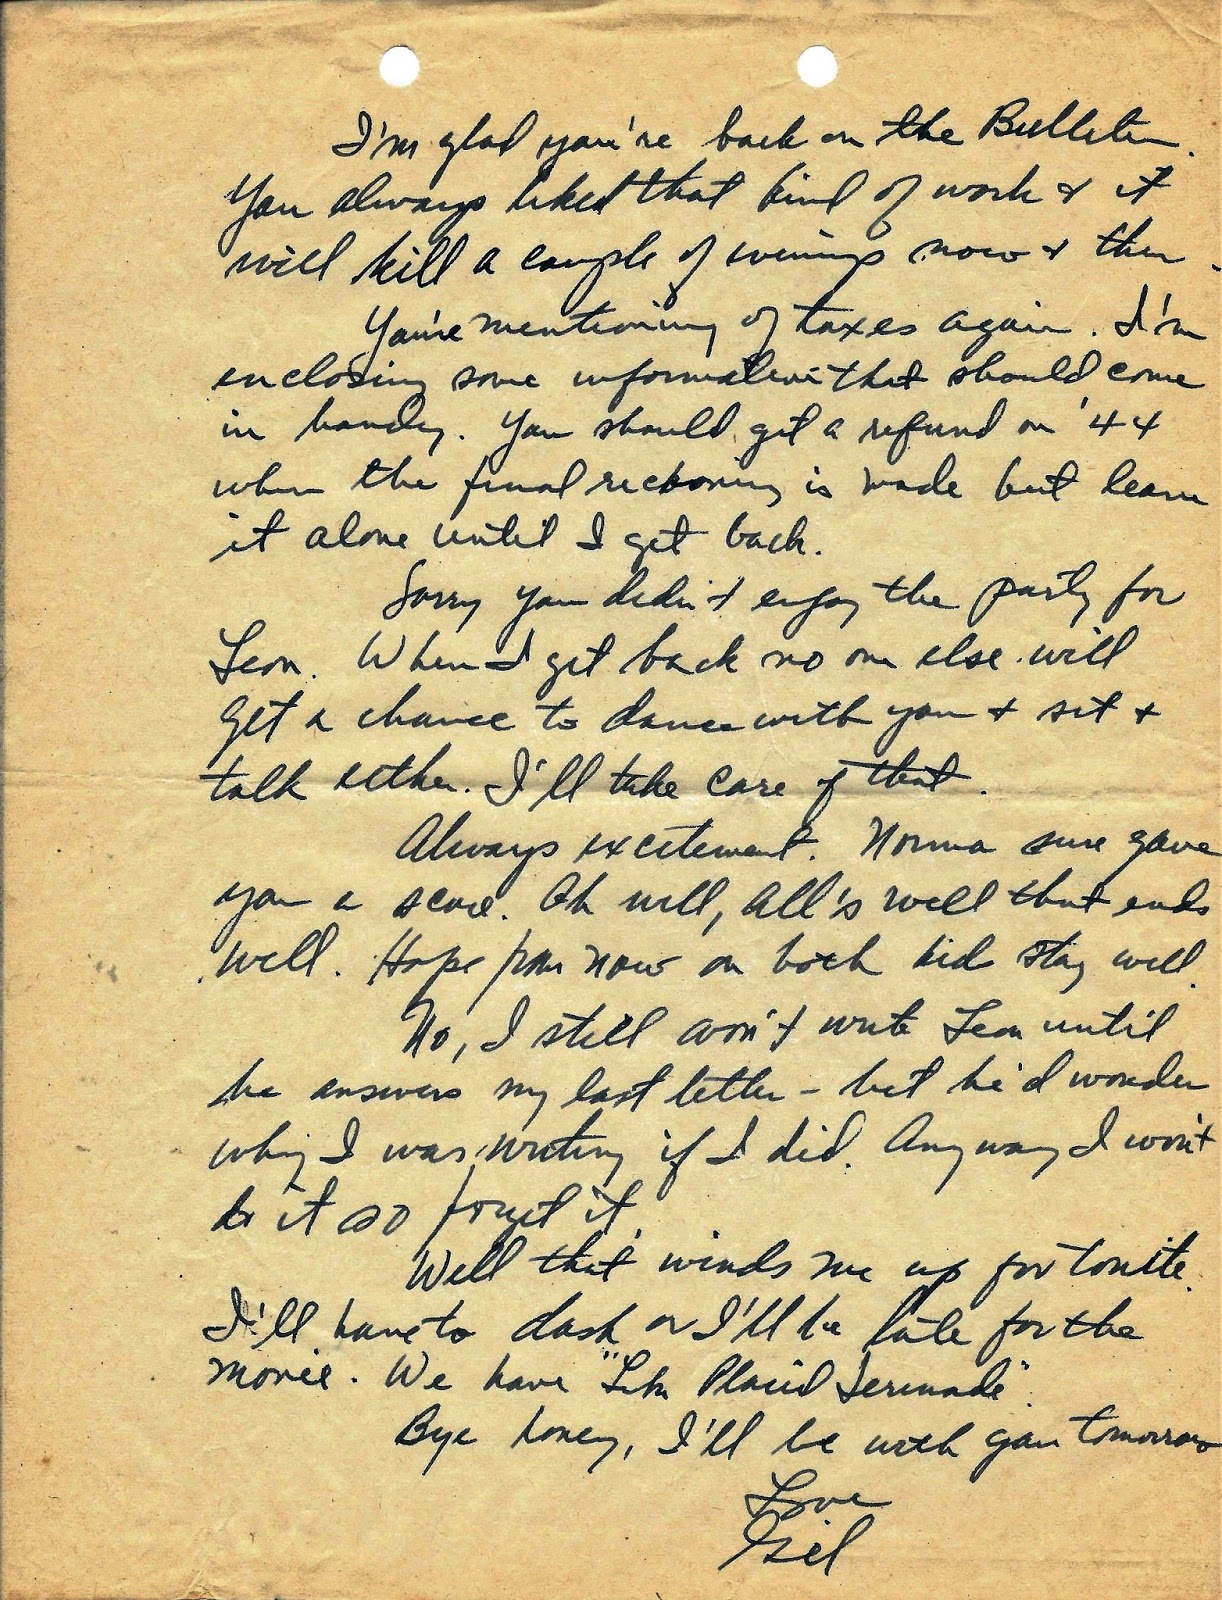 I'm glad you're back on the Bulletin.
You always liked that kind of work & it
will kill a couple of evenings now & then.
You're mentioning of taxes again. I'm
enclosing some information that should come
in handy. You should get a refund on '44
when the final reckoning is made but leave
it alone until I get back.
Sorry you didn't enjoy the party for
Leon. When I get back no one else will
get a chance to dance with you & sit &
talk either. I'll take care of that.
Always excitement. Norma sure gave
you a scare. Oh well, all's well that ends
well. Hope from now on both kid stay well.
No, I still won't write Leon until
he answers my last letter – but he'd wonder
why I was writing if I did. Anyway I won't
do it so forget it.
Well that winds me up for tonite.
I'll have to dash or I'll be late for the
movie. We have "Lake Placid Serenade".
Bye honey, I'll be with you tomorrow
Love
Gil